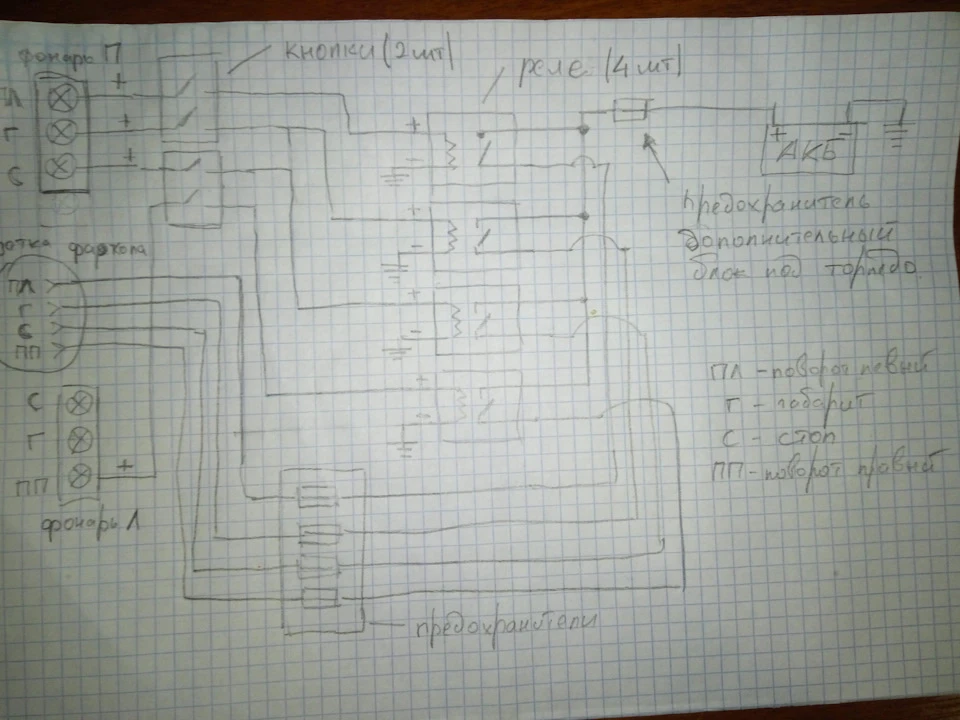 фонарь П
кнопки (2 шт)
реле (4 шт)
ПЛ
+
Г
+
С
+
+
-
+ -
АКБ
Предохранитель
дополнительный
блок под торпедо.
+
-
фаркопа
ПЛ
Г
С
ПП
+
-
ПЛ - поворот левый
Г - габарит
С - стоп
ПП - поворот правый
+
-
С
Г
ПП
+
фонарь Л
предохранители